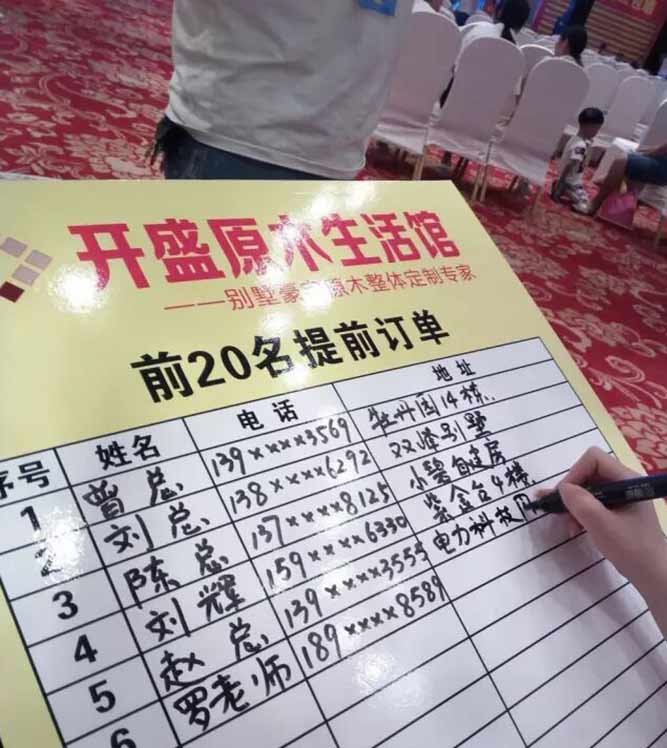 开盛原木生活馆
——别墅豪宅原木整体定制专家
前20名提前订单
序号 姓名 电话 地址
1 曾总 139××××3569 牡丹园14栋.
2 刘总 138××××6292 双峰别墅
3 陈总 137××××8125 小碧自建房
4 刘辉 159××××6330 紫金台4楼.
5 赵总 139××××3555 电力科技
6 罗老师 189××××8589